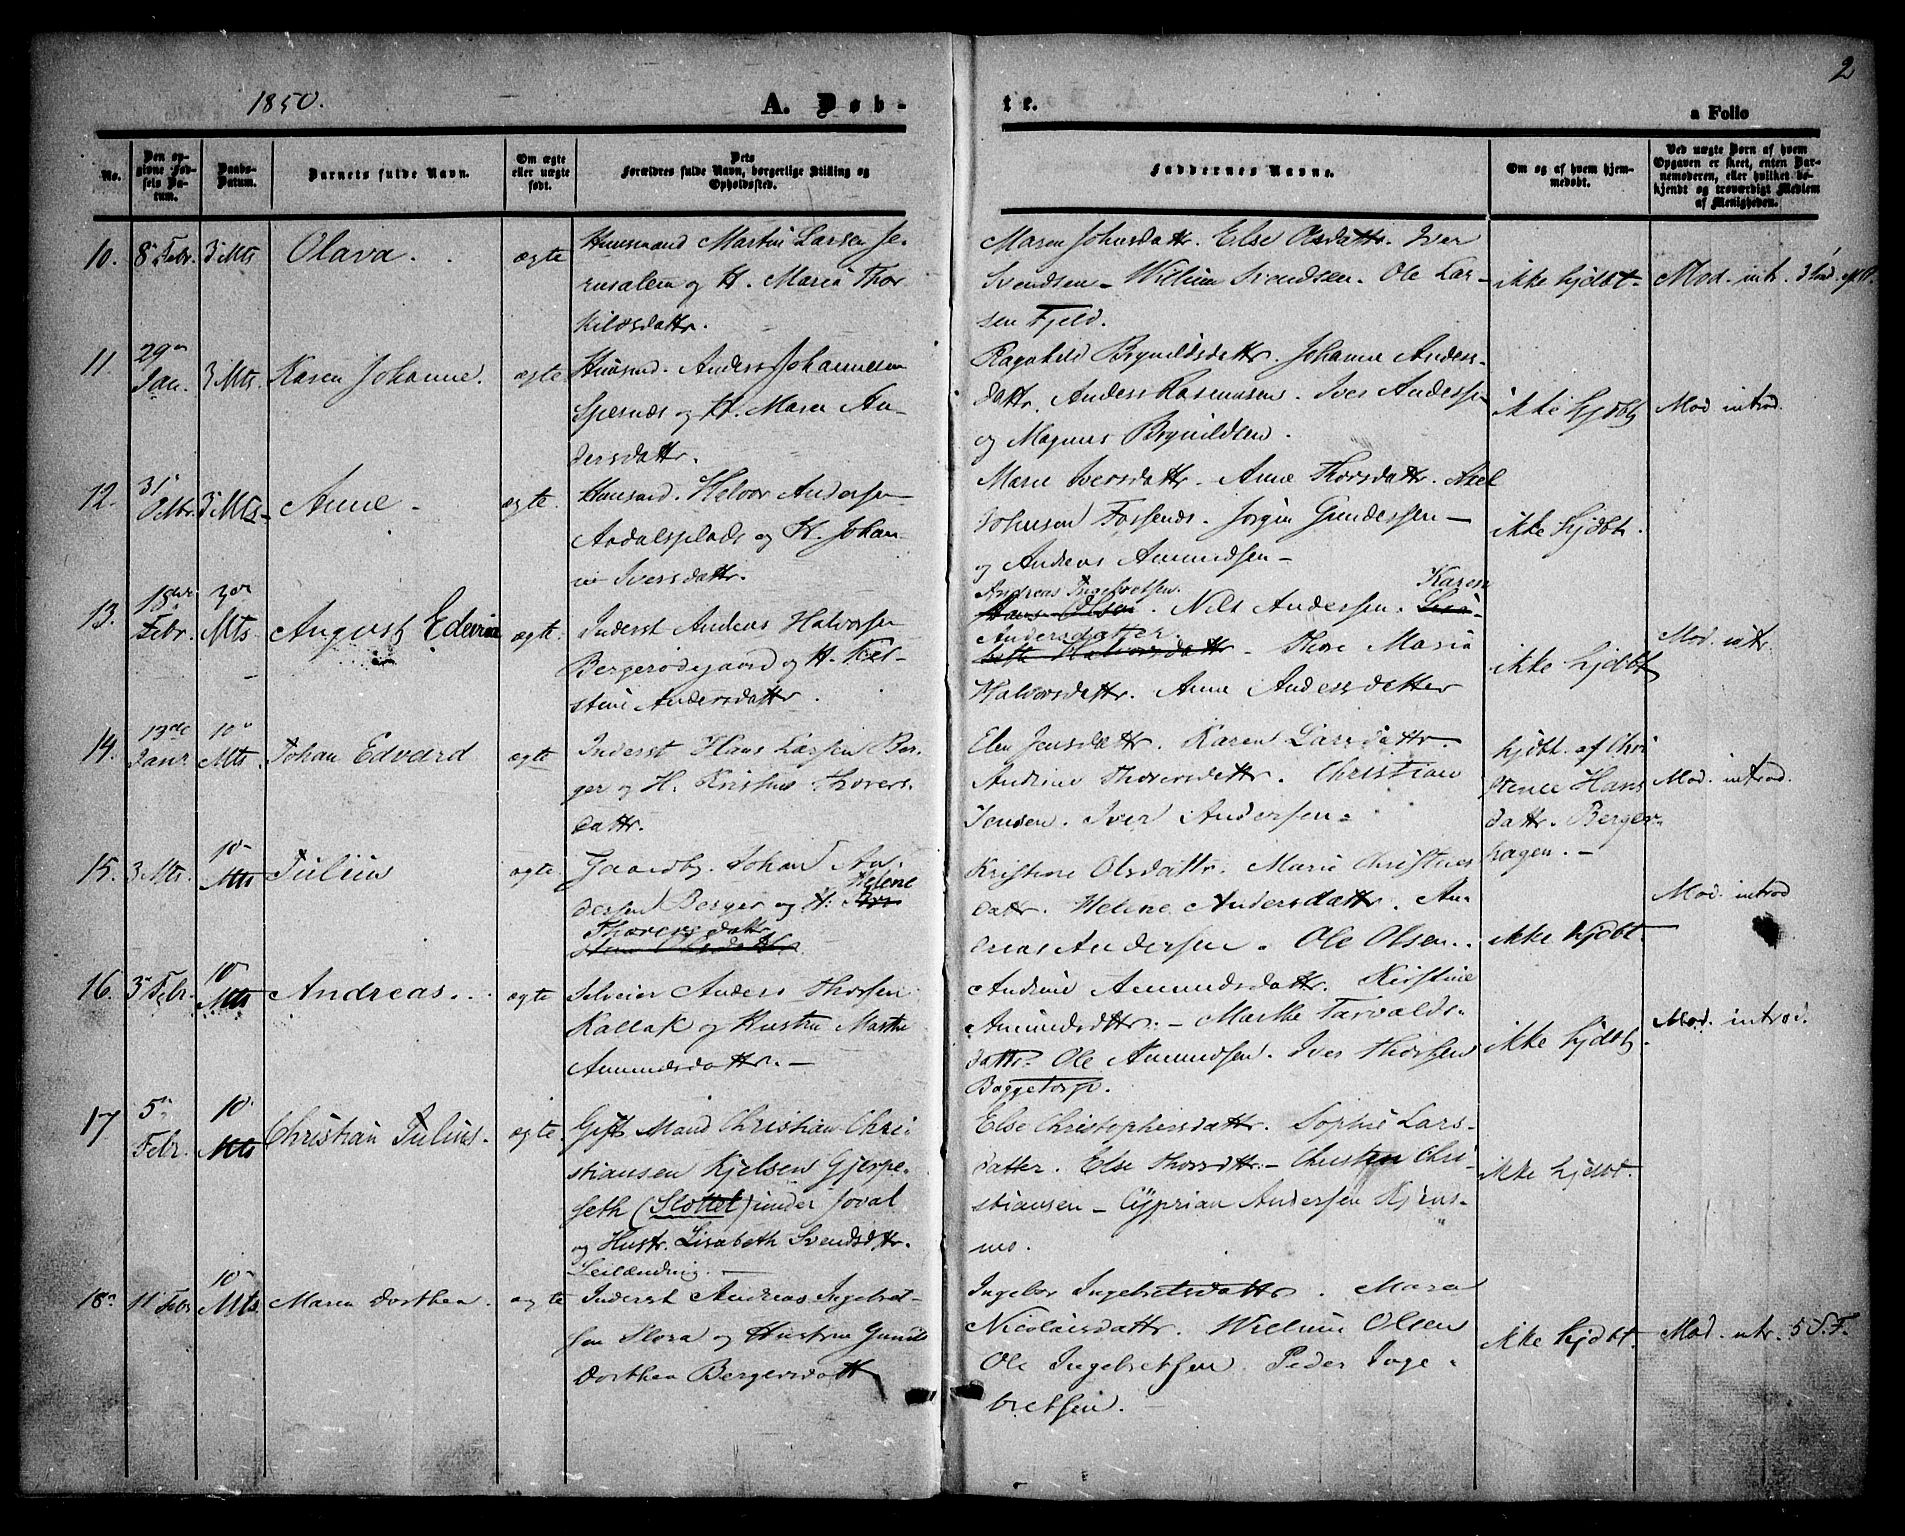 1850. A. Døb-
te.
a Folio
2
No.
Den op-
givne Fød-
sels Da-
tum.
Daabs-
Datum.
Barnets fulde Navn.
Om ægte
eller uægte
født.
Dets
Forældres fulde Navn, borgerlige Stilling og
Opholdssted.
Faddernes Navne.
Om og af hvem hjem-
medøbt.
Ved uægte Børn af hvem
Opgaven er skeet, enten Bar-
nemoderen, eller hvilket be-
kjendt og troværdigt Medlem
af Menigheden.
10.
8 Febr.
3 Mts
Olava.
ægte
Huusmand Martin Larsen Je-
rusalem og H. Maria Thor
kildsdattr.
Maren Johnsdattr. Else Olsdattr. Iver
Svendsen - Willum Svendsen. Ole Lar-
sen Fjeld.
ikke hjdbt.
Mod. int.
11
29
Jan.
3 Mts.
Karen Johanne.
ægte
Huusmd. Anders Johannesen
Spernæs og H. Maren An-
dersdattr.
Ragnhild Brynildsdattr. Johanne Anders-
dattr. Anders Rasmussen. Iver Andersen
og Magnus Brynildsen.
ikke hjdbt
Mod introd.
12.
31
3 Mts-
Anne.
ægte.
Huusmd. Helvor Andersen
Aadalsplads og H. Johan
ne Iversdattr.
Maren Iversdattr. Anne Thorsdattr.
Johnsen Fossenæs. Jørgen Gundersen -
og Andreas Amundsen -
ikke hjdbt.
13.
18
Febr.
3
Mts.
August Edevin
ægte.
Inderst Andreas Halvorsen
Bergerødegaard og H. Kir-
stine Andersdattr.
Andreas Ingebretsen. Karen
Hans Olsen. Nils Andersen.
Andersdatter.
Halvorsdattr - Thore Maria
Halvorsdattr. Anne Andersdatter
ikke hjdbt
Mod. intr.
14.
13de
Janr
10
Mts.
Johan Edvard
ægte
Inderst Hans Larsen Ber-
ger og H. Kristine Thovers-
dattr.
Elen Jensdattr. Karen Larsdattr.
Andrine Thoversdattr. Christian
Jensen. Iver Andersen.
hjdbt. af Chri
stence Hans
dattr. Berger-
hagen. -
Mod. introd.
15.
3 Mts.
10
Mts
Julius
ægte
Gaardbr. Johan An-
dersen Berger og H. Helene
Thoversdattr
Kristine Olsdattr. Marie Christens
dattr. Helene Andersdattr. An-
dreas Andersen. Ole Olsen.
ikke hjdbt.
Mod. introd
16.
3 Febr.
10
Mts
Andreas.
ægte
Selveier Anders Thorsen
Kallak og Hustru Marthe
Amundsdattr. -
Andrine Amundsdattr. Kirstine
Amundsdattr. - Marthe Tarvalds-
dattr. Ole Amundsen. Iver Thorsen
Baggetorp.
ikke hjdbt.
Mod. introd.
17
5
Febr.
10
Mts
Christian Julius.
ægte.
Gift Mand Christian Chri-
stiansen Kjelsen Gjerpe-
seth (Slottet) under Joval
og Hustr. Lisabeth Svendsdtr.
Leilænding. -
Else Christophersdattr. Sophie Lars-
datter. Else Thorsdttr. - Christen Chri-
stiansen - Cyprian Andersen Kjens-
mo.
ikke hjdbt.
18
11 Febr
10
Mts.
Maren Dorthea.
ægte
Inderst Andreas Ingebret-
sen Slora og Hustru Gunild
Dorthea Bergersdatt
Ingebor Ingebretsdattr. Maren
Nicolaisdattr. Willum Olsen
Ole Ingebretsen. Peder Inge-
bretsen.
ikke hjdbt.
Mod. intr. 5 S. F.